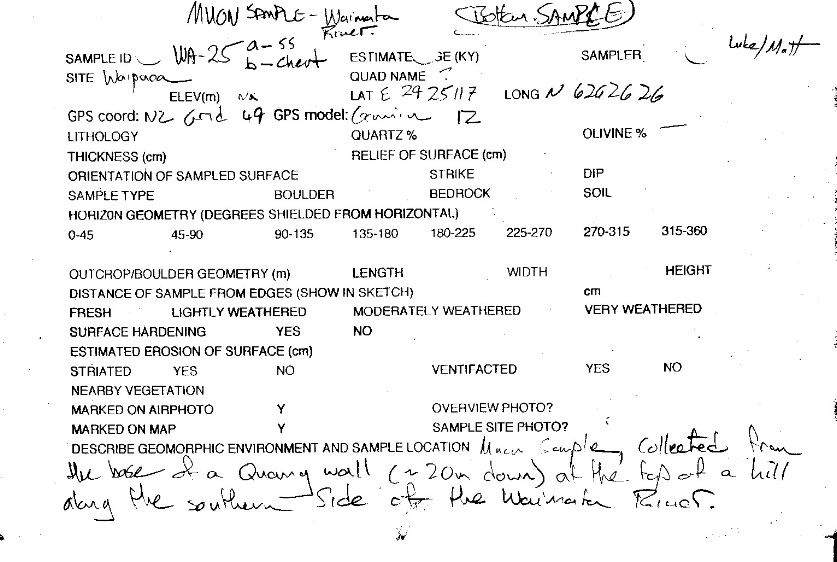 MUON SAMPLE - Waimata River. (Bottom SAMPLE)
SAMPLE ID WA-25 a - ss b - chert ESTIMATE GE (KY) SAMPLER Luke/Matt
SITE Waipaoa QUAD NAME ?
ELEV(m) NA LAT E 2925117 LONG N 6262626
GPS coord: NZ Grid 49 GPS model: Garmin 12
LITHOLOGY QUARTZ % OLIVINE % —
THICKNESS (cm) RELIEF OF SURFACE (cm)
ORIENTATION OF SAMPLED SURFACE STRIKE DIP
SAMPLE TYPE BOULDER BEDROCK SOIL
HORIZON GEOMETRY (DEGREES SHIELDED FROM HORIZONTAL)
0-45 45-90 90-135 135-180 180-225 225-270 270-315 315-360
OUTCROP/BOULDER GEOMETRY (m) LENGTH WIDTH HEIGHT
DISTANCE OF SAMPLE FROM EDGES (SHOW IN SKETCH) cm
FRESH LIGHTLY WEATHERED MODERATELY WEATHERED VERY WEATHERED
SURFACE HARDENING YES NO
ESTIMATED EROSION OF SURFACE (cm)
STRIATED YES NO VENTIFACTED YES NO
NEARBY VEGETATION
MARKED ON AIRPHOTO Y OVERVIEW PHOTO?
MARKED ON MAP Y SAMPLE SITE PHOTO?
DESCRIBE GEOMORPHIC ENVIRONMENT AND SAMPLE LOCATION Muon Sample, Collected from
the base of a Quarry wall (~20m down) at the top of a hill
along the southern side of the Waimata River.
1